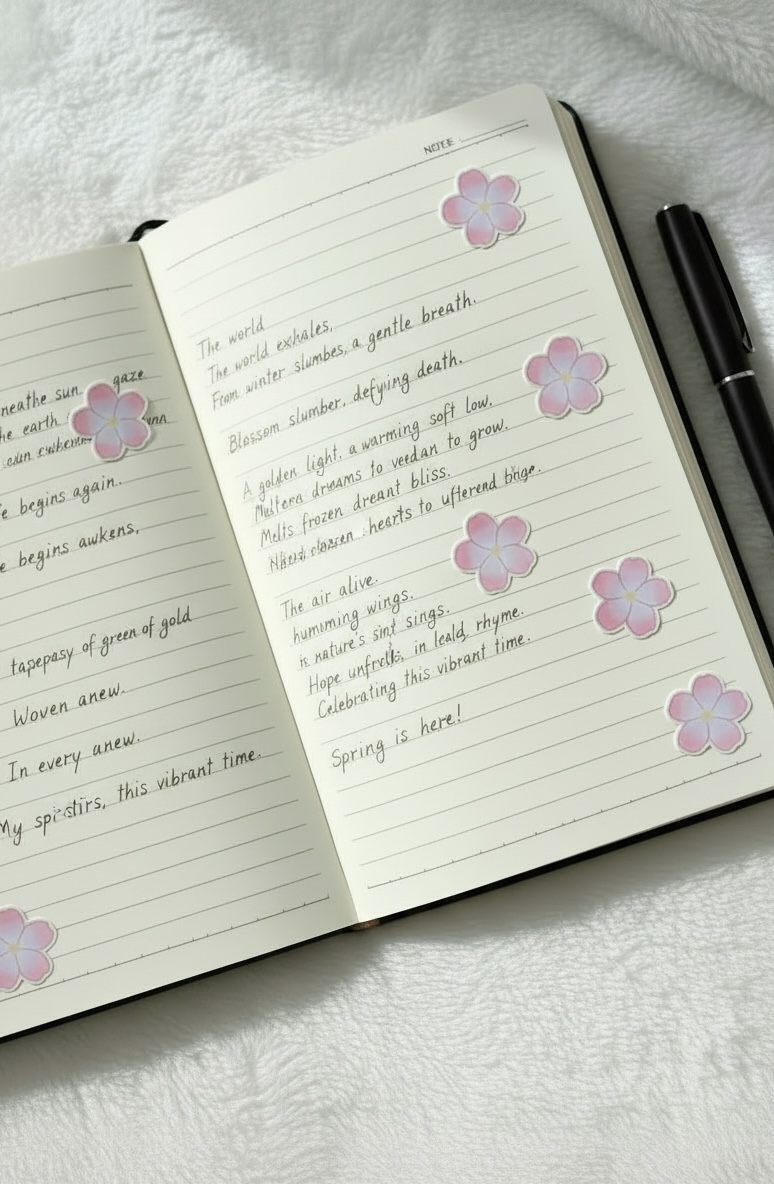 neathe sun gaze
he earth
e begins again.
e begins awkens,
tapepasy of green of gold
Woven anew.
In every anew.
My spistirs, this vibrant time.
NOTE
The world
The world exhales,
From winter slumbes, a gentle breath.
Blossom slumber, defying death.
A golden light, a warming soft low.
dreams to veedan to grow.
Melts frozen dreant bliss.
hearts to ufferend
The air alive.
humming wings.
is nature's sings.
Hope in leald rhyme.
Celebrating this vibrant time.
Spring is here!